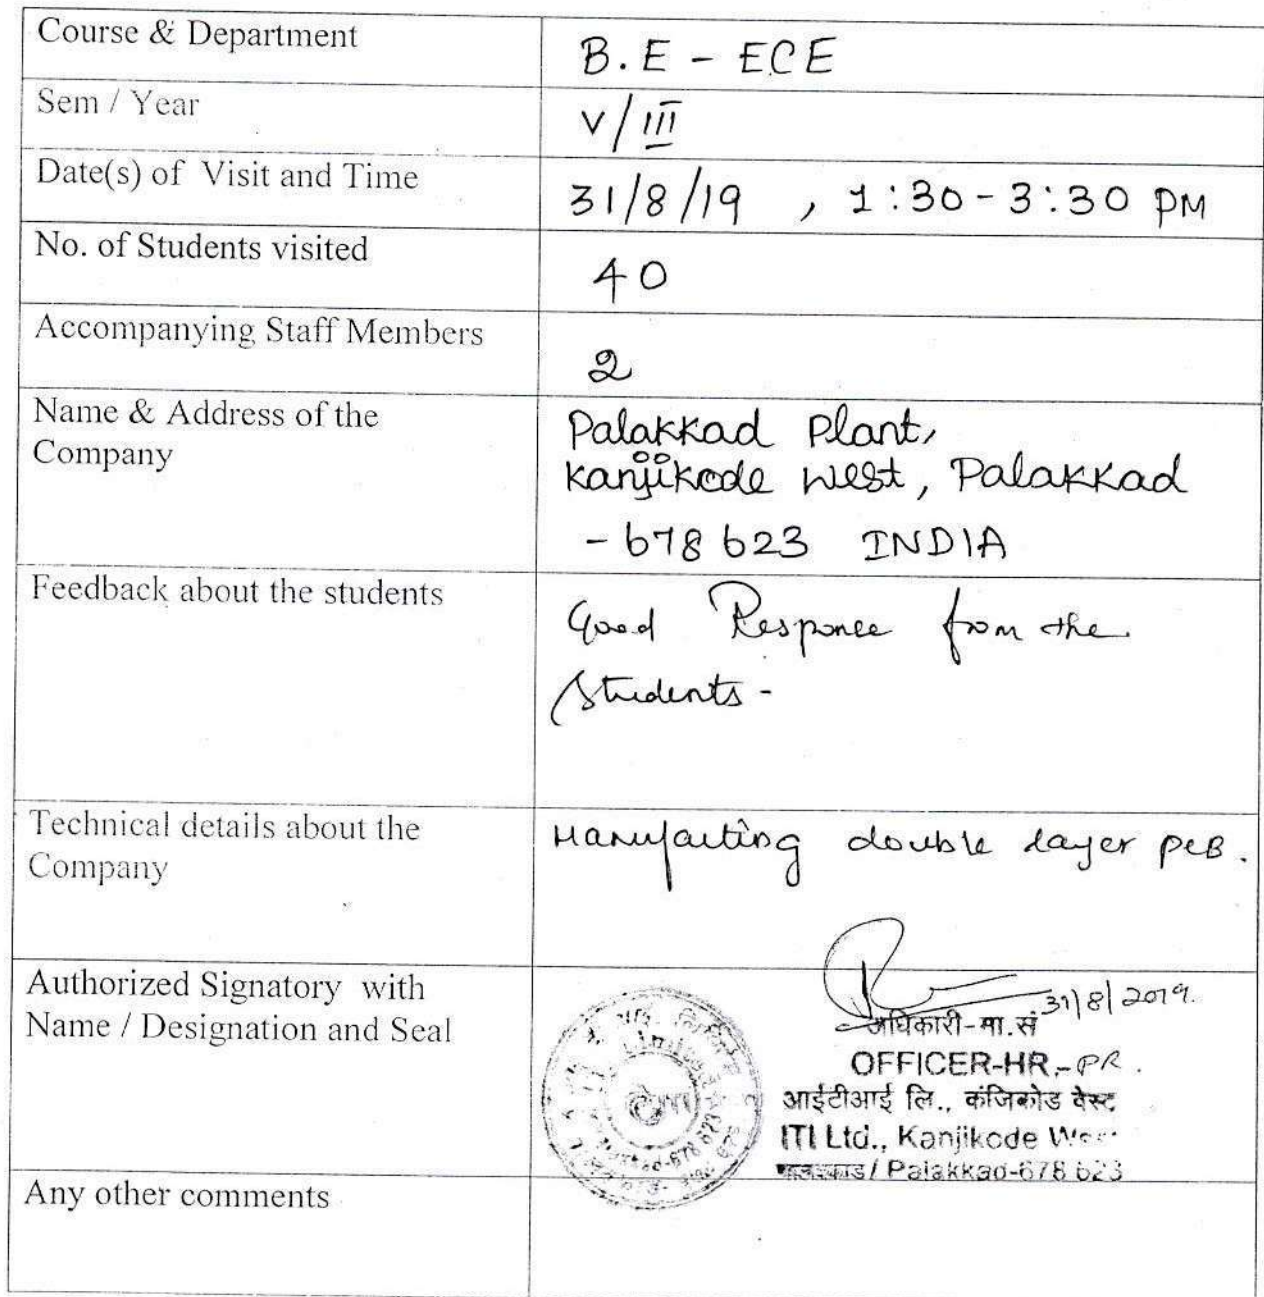 Course & Department
B.E - ECE
Sem / Year
V/III
Date(s) of Visit and Time
31/8/19 , 1:30-3:30 PM
No. of Students visited
40
Accompanying Staff Members
2
Name & Address of the
Company
Palakkad Plant,
Kanjikode West, Palakkad
- 678 623 INDIA
Feedback about the students
Good Responce from the
Students -
Technical details about the
Company
Manufacting double layer PCB.
Authorized Signatory with
Name / Designation and Seal
31/8/2019.
अधिकारी-मा.सं
OFFICER-HR.-PR.
आईटीआई लि., कंजिकोड वेस्ट
ITI Ltd., Kanjikode West
पालक्काड/ Palakkad-678 623
Limited
678 623
Any other comments